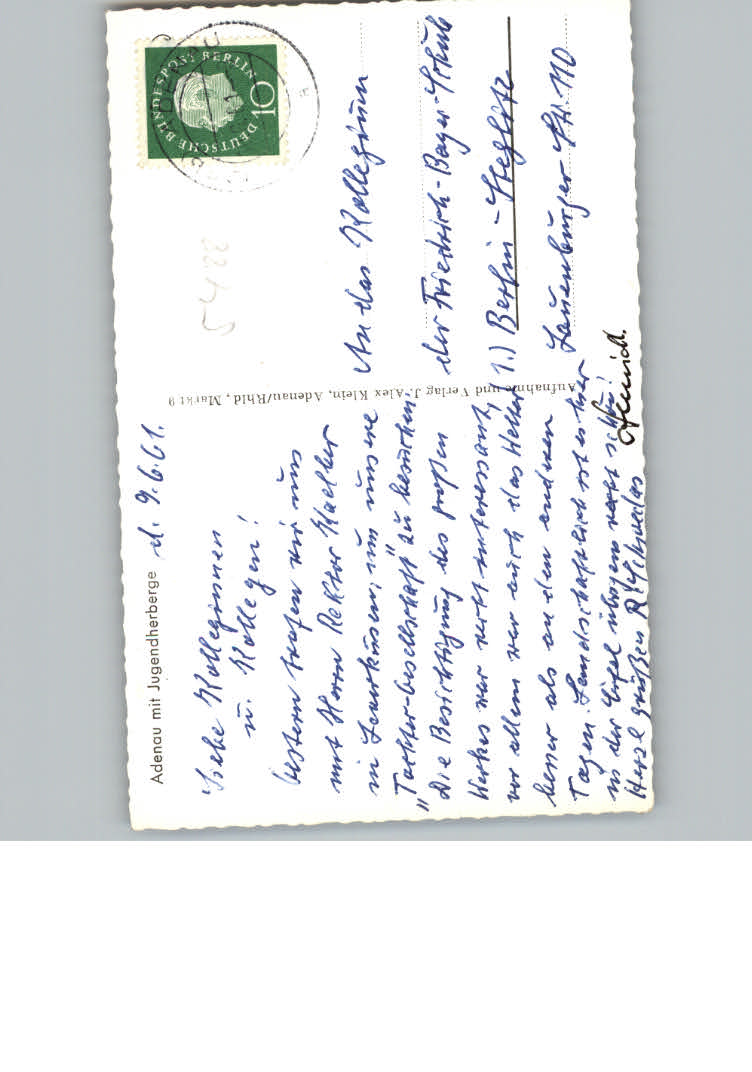 Adenau mit Jugendherberge d. 9.6.61.
Liebe Kolleginnen
u. Kollegen!
Gestern trafen wir uns
mit Herrn Rektor Kaelber
in Leverkusen, um unsere
"Tochter-Gesellschaft" zu besuchen.
Die Besichtigung des großen
Werkes war recht interessant,
vor allem war auch das Wetter
besser als an den anderen
Tagen. Landschaftlich ist es hier
in der Eifel übrigens recht schön!
Herzl. grüßen
Aufnahme und Verlag J. Alex Klein, Adenau/Rhld., Markt 9
DEUTSCHE BUNDESPOST BERLIN
10
An das Kollegium
der Friedrich-Bayer-Schule
1.) Berlin-Steglitz
Lauenburger-Str. 110